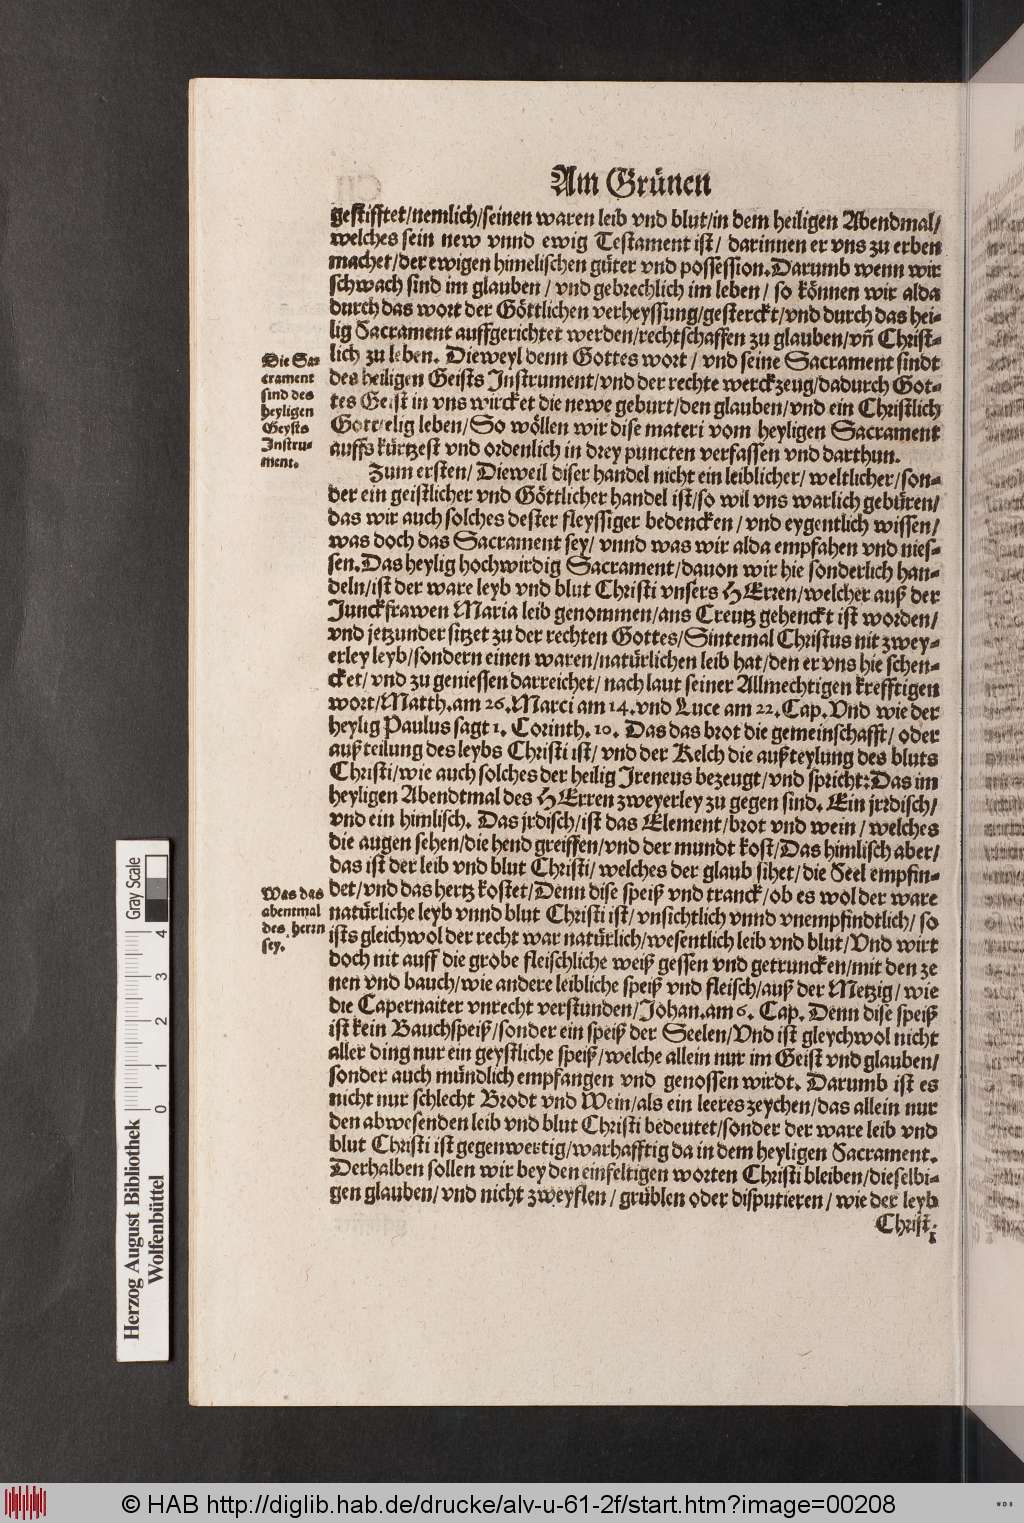 Am Grünen
gestifftet/nemlich/seinen waren leib vnd blut/in dem heiligen Abendmal/
welches sein new vnnd ewig Testament ist/ darinnen er vns zu erben
machet/der ewigen himelischen güter vnd possession. Darumb wenn wir
schwach sind im glauben/ vnd gebrechlich im leben/ so können wir alda
durch das wort der Göttlichen verheyssung/gesterckt/vnd durch das hei-
lig Sacrament auffgerichtet werden/rechtschaffen zu glauben/vñ Christ-
lich zu leben. Dieweyl denn Gottes wort/ vnd seine Sacrament sindt
des heiligen Geists Instrument/vnd der rechte werckzeug/dadurch Got-
tes Geist in vns wircket die newe geburt/den glauben/vnd ein Christlich
Gottselig leben/So wöllen wir dise materi vom heyligen Sacrament
auffs kürtzest vnd ordenlich in drey puncten verfassen vnd darthun.
Die Sa-
crament
sind des
heyligen
Geysts
Instru-
ment.
Zum ersten/ Dieweil diser handel nicht ein leiblicher/ weltlicher/son-
der ein geistlicher vnd Göttlicher handel ist/so wil vns warlich gebüren/
das wir auch solches dester fleyssiger bedencken/ vnd eygentlich wissen/
was doch das Sacrament sey/ vnnd was wir alda empfahen vnd nies-
sen. Das heylig hochwirdig Sacrament/dauon wir hie sonderlich han-
deln/ist der ware leyb vnd blut Christi vnsers HErren/welcher auß der
Junckfrawen Maria leib genommen/ans Creutz gehenckt ist worden/
vnd jetzunder sitzet zu der rechten Gottes/Sintemal Christus nit zwey-
erley leyb/sondern einen waren/natürlichen leib hat/den er vns hie schen-
cket/ vnd zu geniessen darreichet/ nach laut seiner Allmechtigen krefftigen
wort/Matth.am 26.Marci am 14.vnd Luce am 22.Cap.Vnd wie der
heylig Paulus sagt 1. Corinth. 10. Das das brot die gemeinschafft/ oder
außteilung des leybs Christi ist/ vnd der Kelch die außteylung des bluts
Christi/wie auch solches der heilig Jreneus bezeugt/vnd spricht: Das im
heyligen Abendtmal des HErren zweyerley zu gegen sind. Ein jrrdisch/
vnd ein himlisch. Das jrdisch/ist das Element/brot vnd wein/ welches
die augen sehen/die hend greiffen/vnd der mundt kost/Das himlisch aber/
das ist der leib vnd blut Christi/ welches der glaub sihet/die Seel empfin-
det/vnd das hertz kostet/Denn dise speiß vnd tranck/ob es wol der ware
natürliche leyb vnnd blut Christi ist/vnsichtlich vnnd vnempfindtlich/ so
ists gleichwol der recht war natürlich/wesentlich leib vnd blut/Vnd wirt
doch nit auff die grobe fleischliche weiß gessen vnd getruncken/mit den ze
nen vnd bauch/wie andere leibliche speiß vnd fleisch/auß der Metzig/ wie
die Capernaiter vnrecht verstunden/Johan.am 6. Cap. Denn dise speiß
ist kein Bauchspeiß/sonder ein speiß der Seelen/Vnd ist gleychwol nicht
aller ding nur ein geystliche speiß/welche allein nur im Geist vnd glauben/
sonder auch mündlich empfangen vnd genossen wirdt. Darumb ist es
nicht nur schlecht Brodt vnd Wein/als ein leeres zeychen/das allein nur
den abwesenden leib vnd blut Christi bedeutet/sonder der ware leib vnd
blut Christi ist gegenwertig/warhafftig da in dem heyligen Sacrament.
Derhalben sollen wir bey den einfeltigen worten Christi bleiben/dieselbi-
gen glauben/ vnd nicht zweyflen/ grüblen oder disputieren/ wie der leyb
Christi
Was das
abentmal
des herrn
sey.
Gray Scale
0 1 2 3 4
Herzog August Bibliothek
Wolfenbüttel
© HAB http://diglib.hab.de/drucke/alv-u-61-2f/start.htm?image=00208